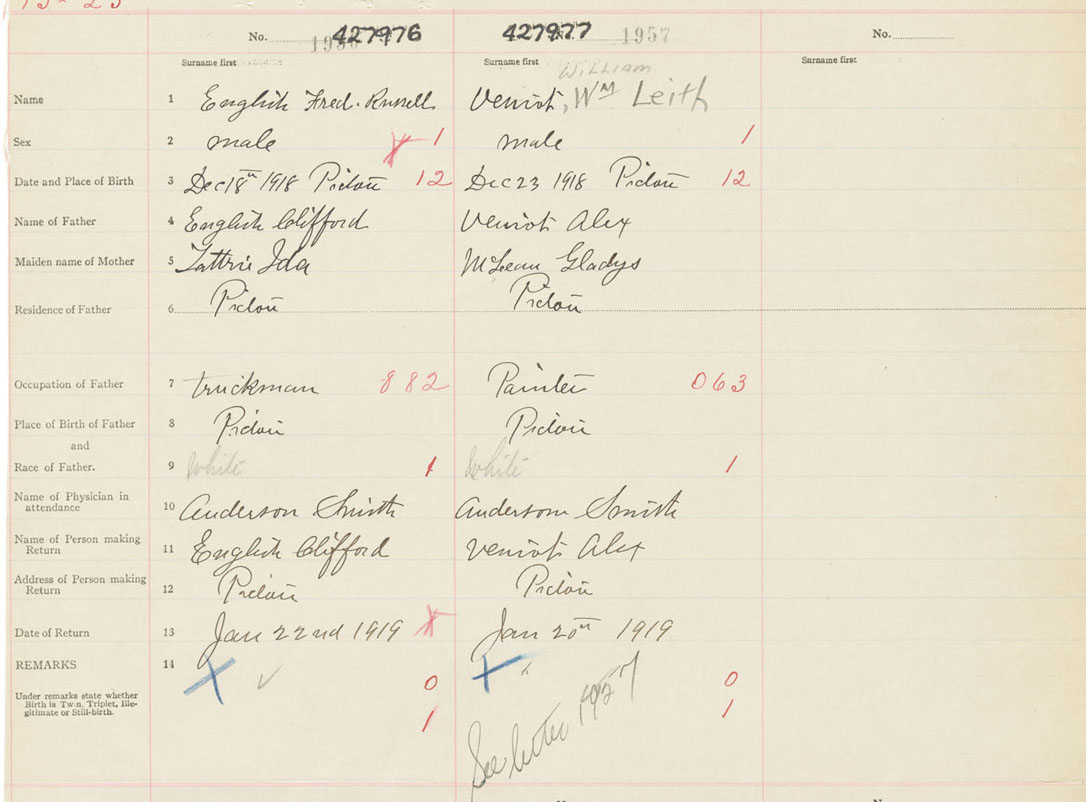 No. 427976 427977 No. 1957 No.
Surname first Surname first Surname first
WILLIAM
Name 1 English Fred. Russell Veniot, Wm Leith
Sex 2 male 1 male 1
Date and Place of Birth 3 Dec 18th 1918 Pictou 12 Dec 23 1918 Pictou 12
Name of Father 4 English Clifford Veniot Alex
Maiden name of Mother 5 Tattrie Ida McLean Gladys
Residence of Father 6 Pictou Pictou
Occupation of Father 7 truckman 882 Painter 063
Place of Birth of Father 8 Pictou Pictou
and
Race of Father. 9 White 1 White 1
Name of Physician in
attendance 10 Anderson Smith Anderson Smith
Name of Person making
Return 11 English Clifford Veniot Alex
Address of Person making
Return 12 Pictou Pictou
Date of Return 13 Jan 22nd 1919 Jan 20th 1919
REMARKS 14
Under remarks state whether
Birth is Twin, Triplet, Ille-
gitimate or Still-birth.
0 0
1 1
See letter 1927